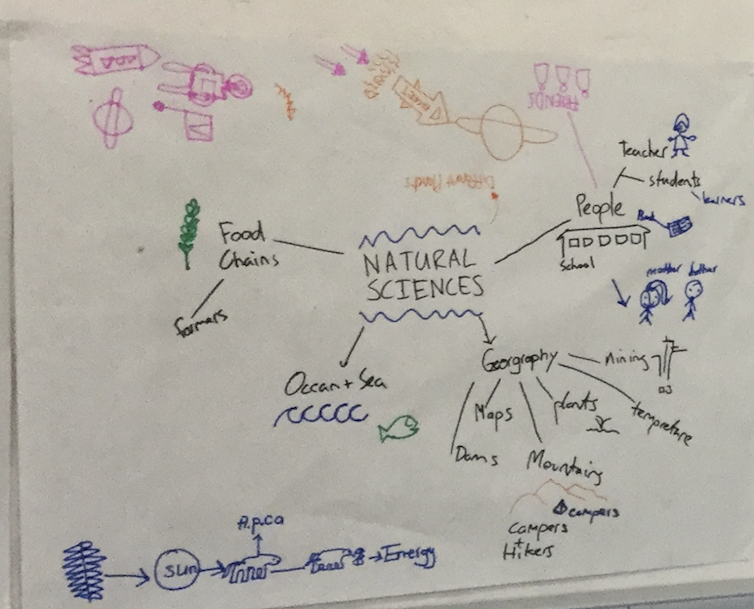 FRIENDS
Teacher
students
learners
People
Book
School
mother father
Different Planets
Food
Chains
farmers
NATURAL
SCIENCES
Ocean + Sea
Georgraphy
Mining
Maps
plants
tempreture
Dams
Mountains
campers
campers
+
Hikers
Sun
Energy